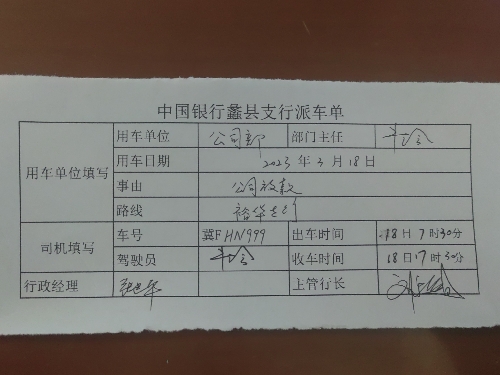 中国银行蠡县支行派车单
用车单位填写 用车单位 公司部 部门主任
用车日期 2023年3月18日
事由 公司放款
路线 裕华支行
司机填写 车号 冀FHN999 出车时间 18日7时30分
驾驶员 收车时间 18日17时30分
行政经理 上管行长